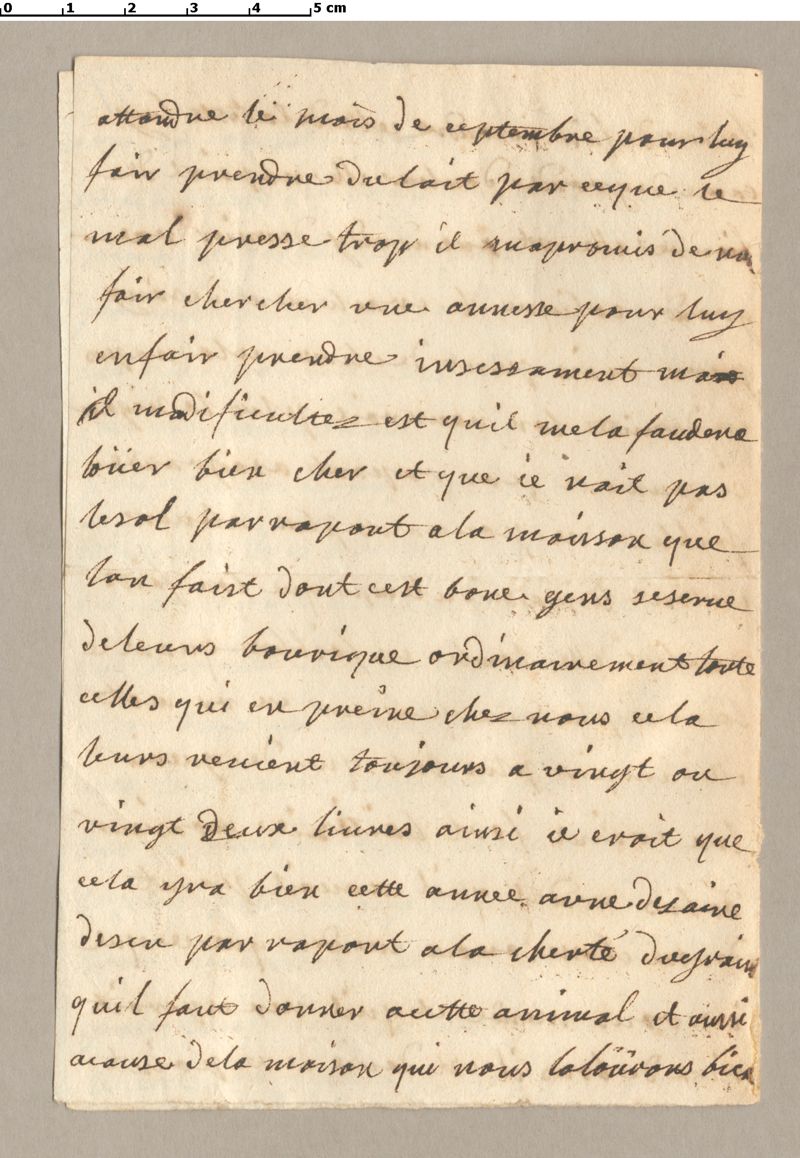 0 1 2 3 4 5 cm
attandre le mois de ceptembre pour luy
fair prendre du lait par ceque le
mal presse trop il mapromis de nou
fair chercher une annesse pour luy
enfair prendre insessament mais
il madificultez est quil mela faudera
loüer bien cher et que ie nait pas
lesol parraport ala moisson que
lon faist dont cest bone gens seserue
deleurs bourique ordinairement toute
celles qui en preine chez nous cela
leurs reuient toujours a vingt ou
vingt deux liures ainsi ie croit que
cela yra bien cette annee a une desaine
desen par raport ala cherté dugrain
quil faut donner acette annimal et aussi
acause dela moison qui nous lalourons bien